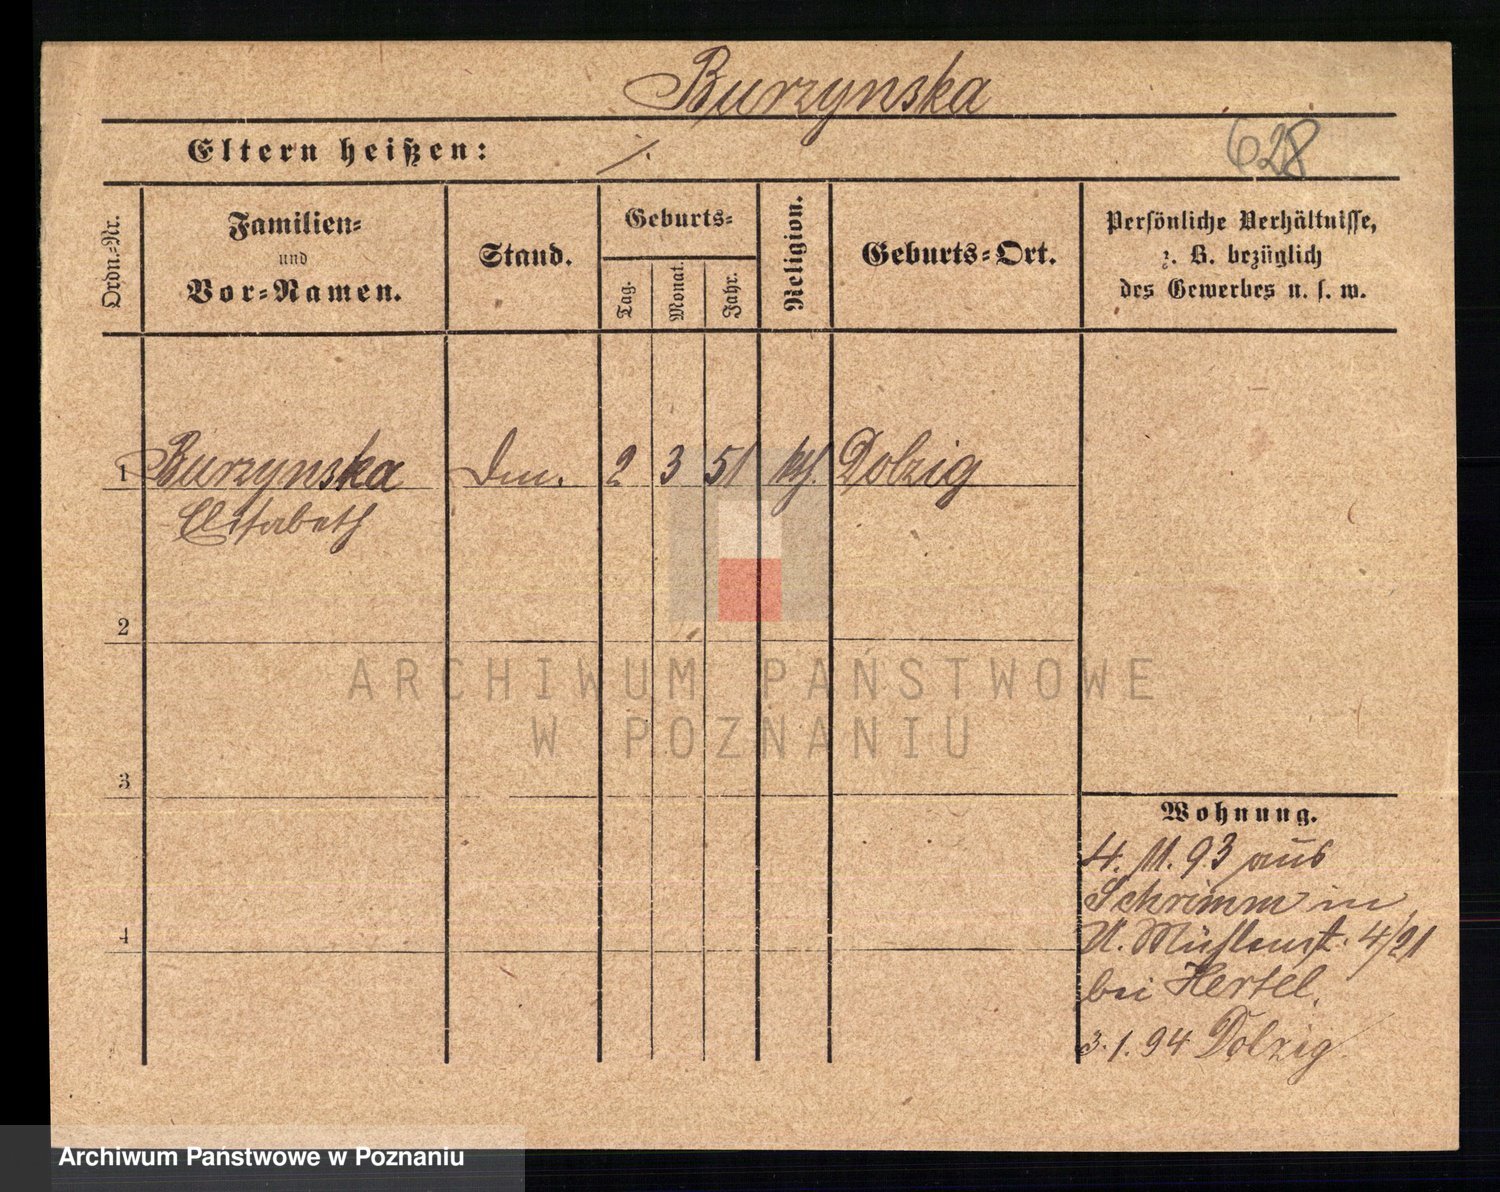 Burzynska
Eltern heißen: ⁒
628
Ordn.-Nr.
Familien-
und
Vor-Namen.
Stand.
Geburts-
Tag.
Monat.
Jahr.
Religion.
Geburts-Ort.
Persönliche Verhältnisse,
z. B. bezüglich
des Gewerbes u. s. w.
1 Burzynska 2 3 51 kth. Dolzig
Elisabeth
2
3
4
Wohnung.
4. 11. 93 aus
Schrimm in
Mühlenst. 4/21
bei Hertel.
3. 1. 94 Dolzig
ARCHIWUM PAŃSTWOWE
W POZNANIU
Archiwum Państwowe w Poznaniu